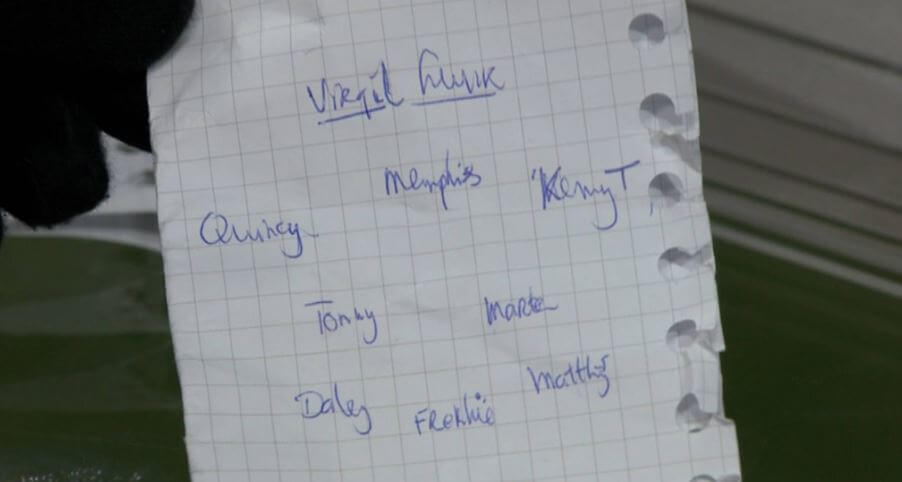 Virgil Luuk
Quincy Memphis Kenny T
Tonny Marten
Daley Frenkie Matthijs